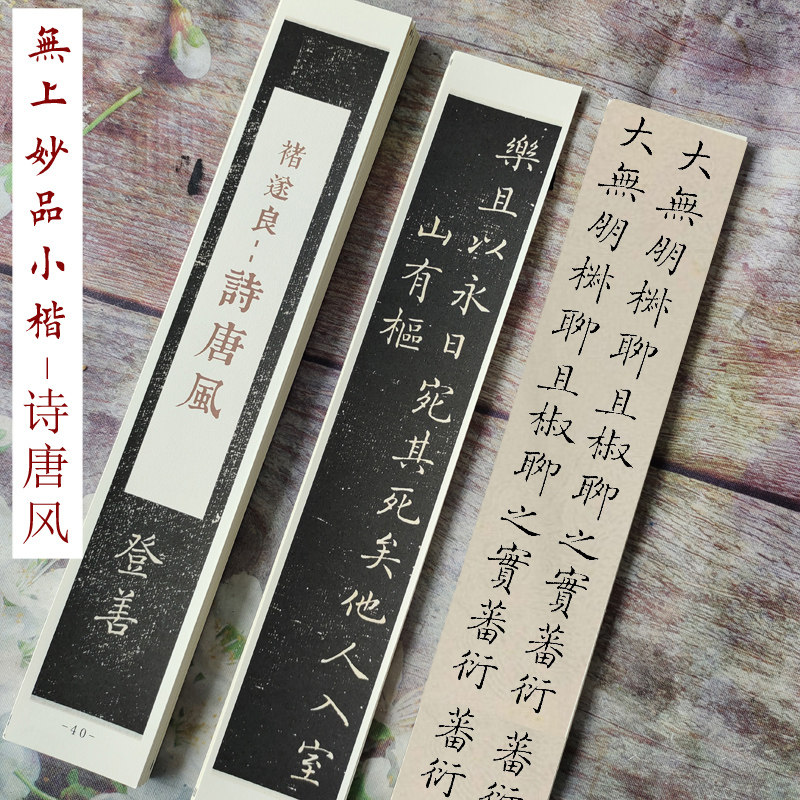 無上妙品小楷-诗唐风
褚遂良--詩唐風
登善
-40-
樂且以永日宛其死矣他人入室
山有樞
大無朋椒聊且椒聊之實蕃衍蕃
大無朋椒聊且椒聊之實蕃衍蕃衍